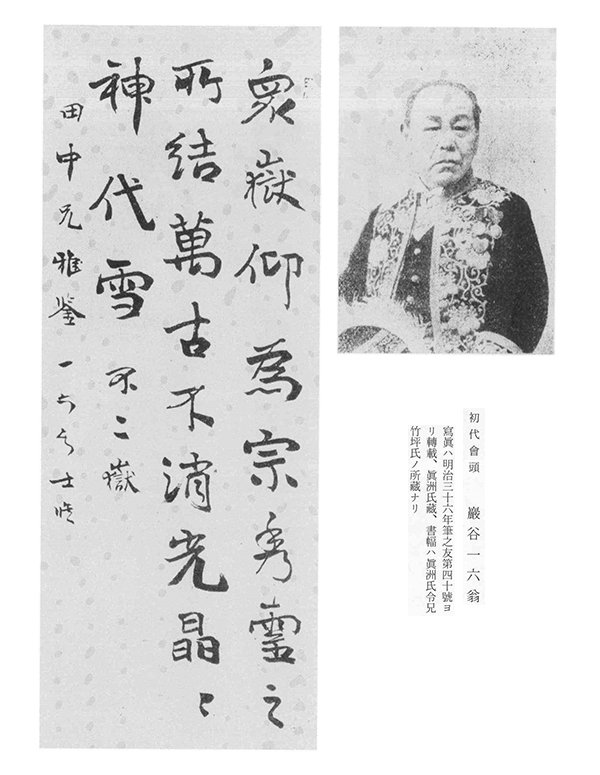 初代會頭 巖谷一六翁
寫眞ハ明治三十六年筆之友第四十號ヨ
リ轉載、眞洲氏藏、書幅ハ眞洲氏令兄
竹坪氏ノ所藏ナリ
衆嶽仰為宗秀靈之
所結萬古不消光晶〻
神代雪 不二嶽
田中兄雅鑒 一六居士